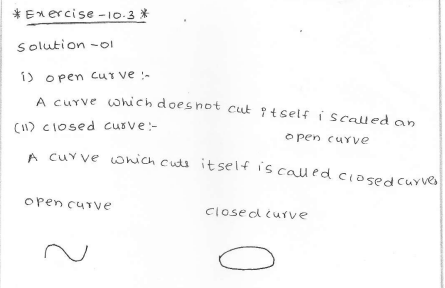 * Exercise - 10.3 *
Solution - 01
i) open curve :-
A curve which does not cut itself is called an open curve
(ii) closed curve:-
A curve which cuts itself is called closed curves
open curve closed curve